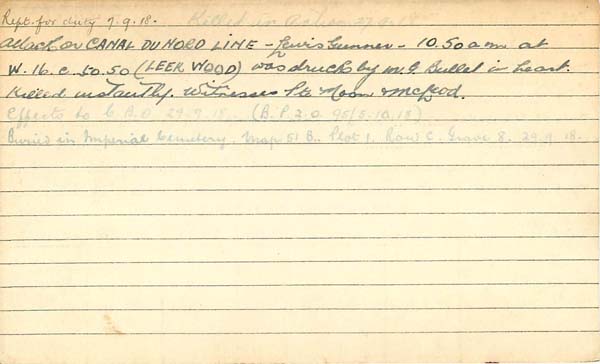 Rept. for duty 7.9.18. Killed in Action 27.9.18
Attack on CANAL DU NORD LINE - Lewis Gunner - 10.50 am at
W.16.c.50.50 (LEEK WOOD) was struck by M.G. Bullet in heart.
Killed instantly. Witnesses Pte Moon & McLeod.
Effects to C.B.O. 29.9.18. (B.P.2.0. 95/5.10.18)
Buried in Imperial Cemetery. Map 51 B. Plot 1. Row C. Grave 8. 29.9.18.